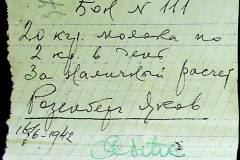 37
Бон N 111
20 кгр. молока по
2 кр. в день
За наличный расчет
Розенберг Яков
16/6-1942